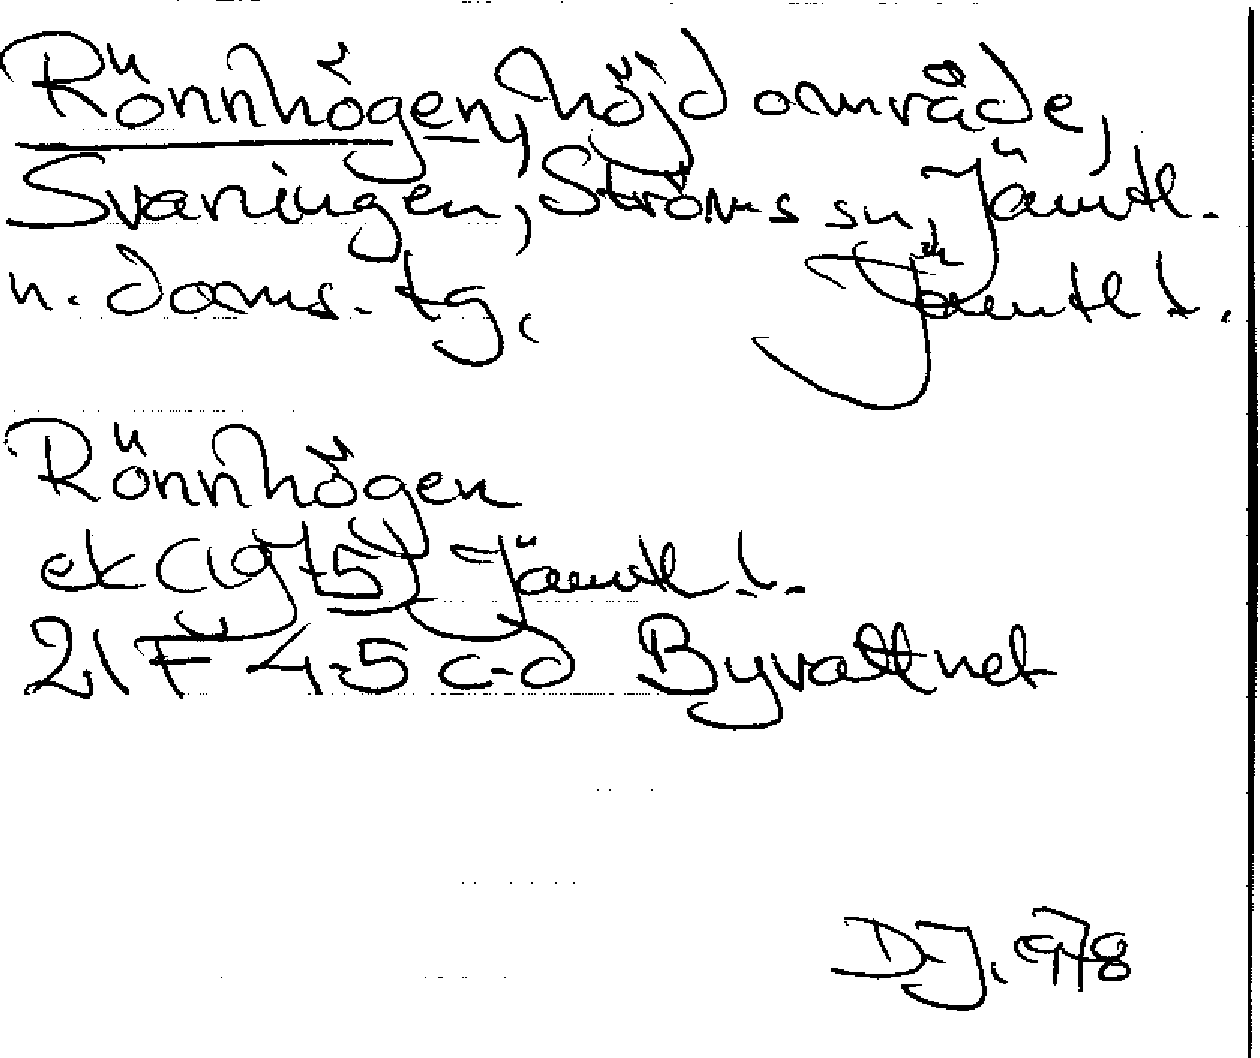 Rönnhögen, höjdområde,
Svaningen, Ströms sn, Jämtl.
n. doms. tg, Jämtl l.
Rönnhögen
ek (1975) Jämtl l.
21 F 4-5 c-d Byvattnet
D.J. 978